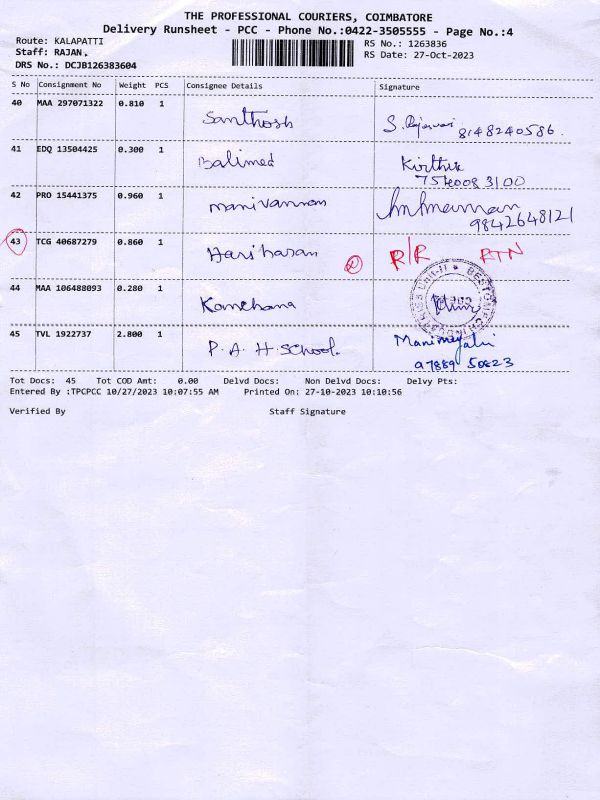 THE PROFESSIONAL COURIERS, COIMBATORE
Delivery Runsheet - PCC - Phone No.:0422-3505555 - Page No.:4
Route: KALAPATTI
Staff: RAJAN.
DRS No.: DCJB126383604
RS No.: 1263836
RS Date: 27-Oct-2023
S No Consignment No Weight PCS Consignee Details Signature
40 MAA 297071322 0.810 1 Santhosh S. Rajeswari 8148240586.
41 EDQ 13504425 0.300 1 Balimed Kirthik
7540083100
42 PRO 15441375 0.960 1 Manivannan
9842648121
43 TCG 40687279 0.860 1 Hariharan R/R RTN
44 MAA 106488093 0.280 1 Kanchana
45 TVL 1922737 2.800 1 P. A. H. School. Manimegalai
97889 50823
Tot Docs: 45 Tot COD Amt: 0.00 Delvd Docs: Non Delvd Docs: Delvy Pts:
Entered By :TPCPCC 10/27/2023 10:07:55 AM Printed On: 27-10-2023 10:10:56
Verified By Staff Signature